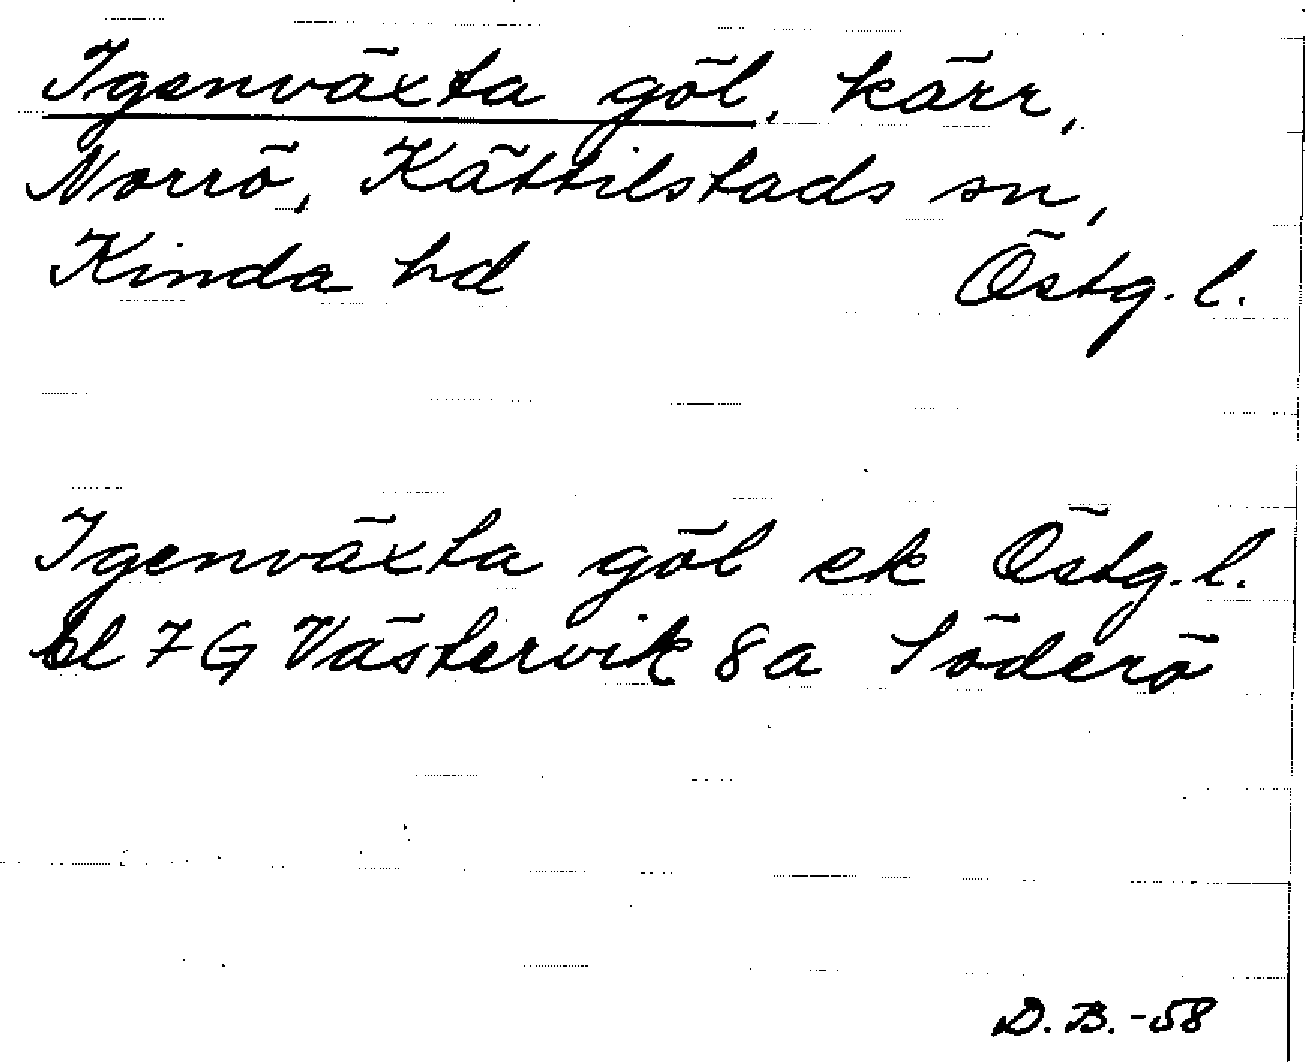 Igenväxta göl, kärr,
Norrö, Kättilstads sn,
Kinda hd Östg. l.
Igenväxta göl ek Östg. l.
bl 7 G Västervik 8 a Söderö
D. B. -58